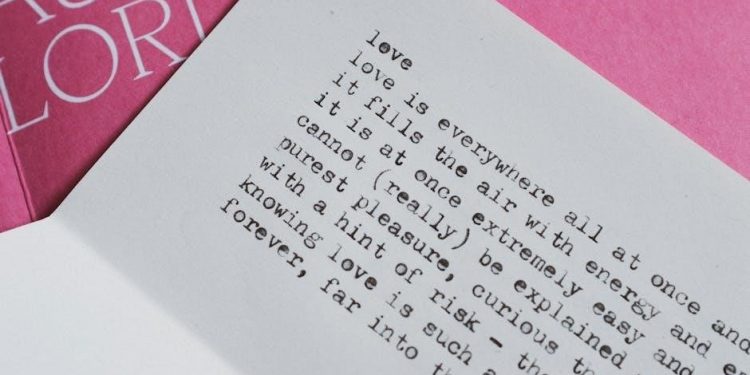 LOR
love
love is everywhere all at once and
it fills the air with energy and
it is at once extremely easy and
cannot (really) be explained
purest pleasure, curious
with a hint of risk -
knowing love is such
forever, far into